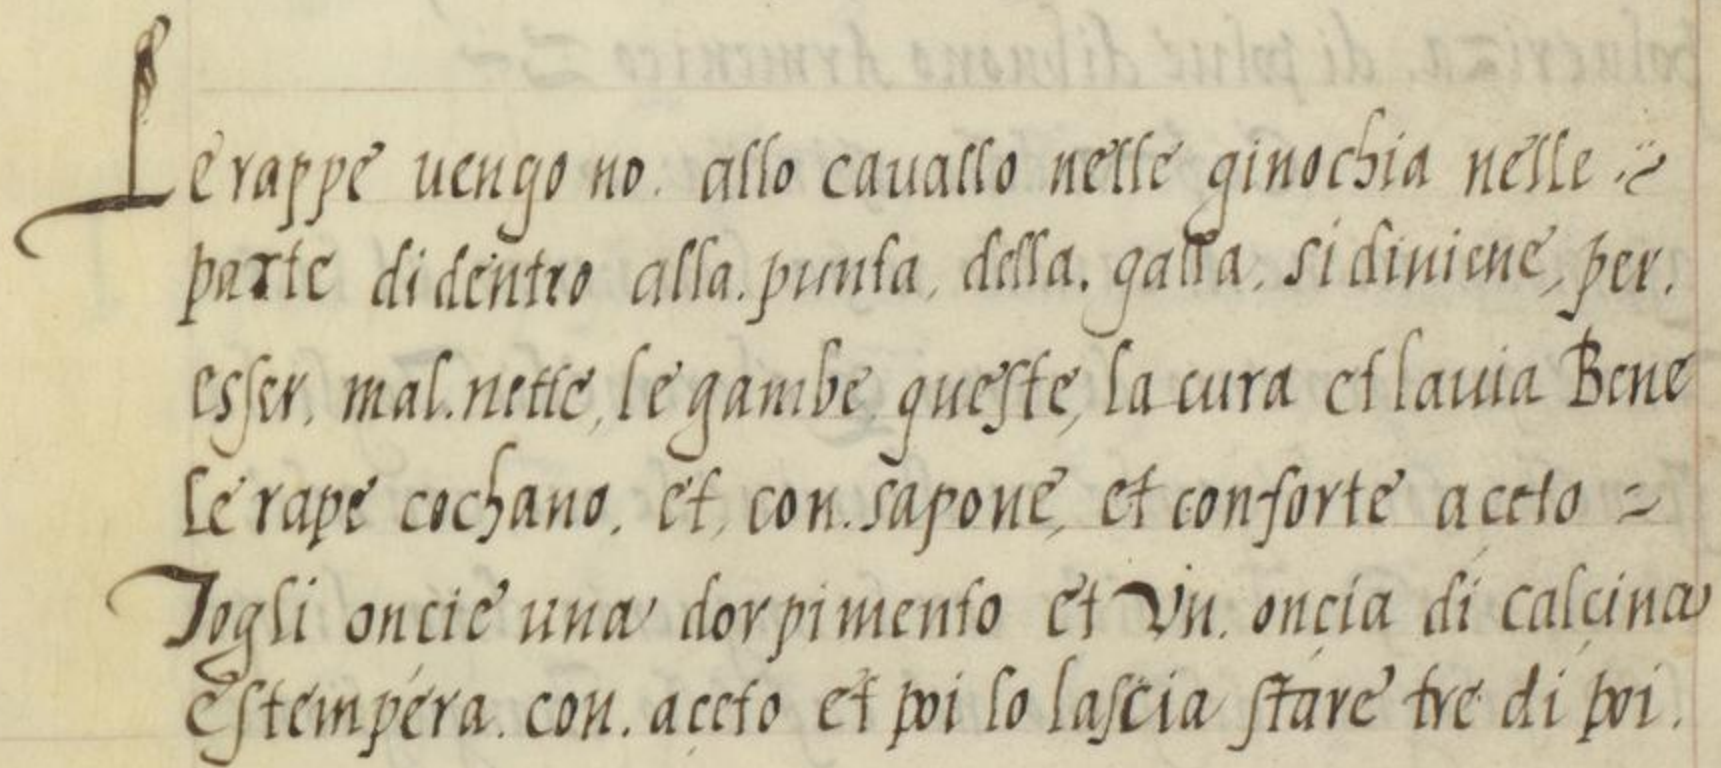 Le rappe uengono. allo cauallo nelle ginochia nelle
parte di dentro alla. punta, della. gatta, si diuiene, per.
esser, mal. nette, le gambe queste, la cura et lauia Bene
Le rape cochano, et, con. sapone, et con forte aceto =
Togli oncie una dorpimento et Vn. oncia di calcina
e stempera. con. aceto et poi lo lascia stare tre di poi.